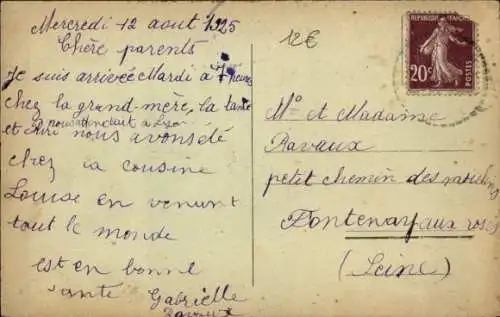 Mercredi 12 aout 1925
Chère parents
Je suis arrivée Mardi à 7 heures
chez la grand-mère. la tante
nous attendait à Lyon
et nous avons été
chez la cousine
Louise en venant
tout le monde
est en bonne
santé Gabrielle
Ravaux
12€
REPUBLIQUE FRANÇAISE
20c
POSTES
Mr et Madame
Ravaux
petit chemin des
Fontenay aux roses
(Seine)